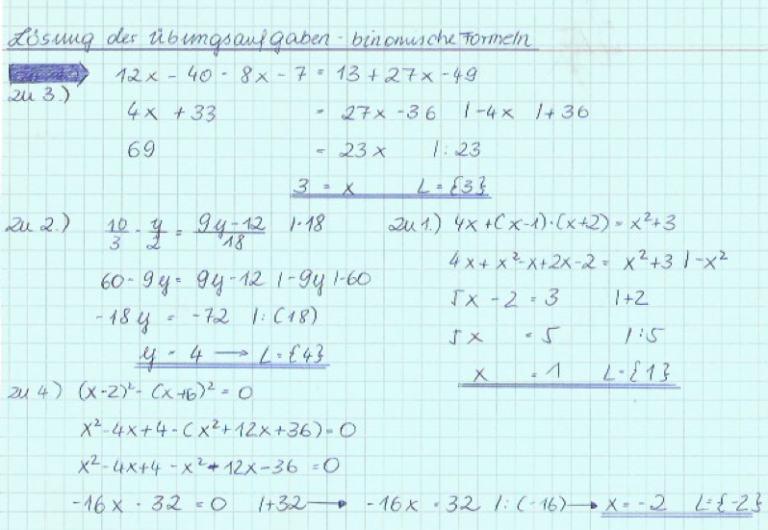 Lösung der Übungsaufgaben - binomische Formeln
12x - 40 - 8x - 7 = 13 + 27x - 49
zu 3.)
4x + 33 = 27x - 36 |-4x |+36
69 = 23x |: 23
3 = x L = {3}
zu 2.) 10/3 - y/2 = (9y-12)/18 |·18
60 - 9y = 9y - 12 |-9y |-60
-18y = -72 |: (18)
y = 4 → L = {4}
zu 1.) 4x + (x-1)·(x+2) = x²+3
4x + x² - x + 2x - 2 = x²+3 |-x²
5x - 2 = 3 |+2
5x = 5 |:5
x = 1 L = {1}
zu 4) (x-2)² - (x+6)² = 0
x² - 4x + 4 - (x² + 12x + 36) = 0
x² - 4x + 4 - x² - 12x - 36 = 0
-16x - 32 = 0 |+32 → -16x = 32 |: (-16) → x = -2 L = {-2}